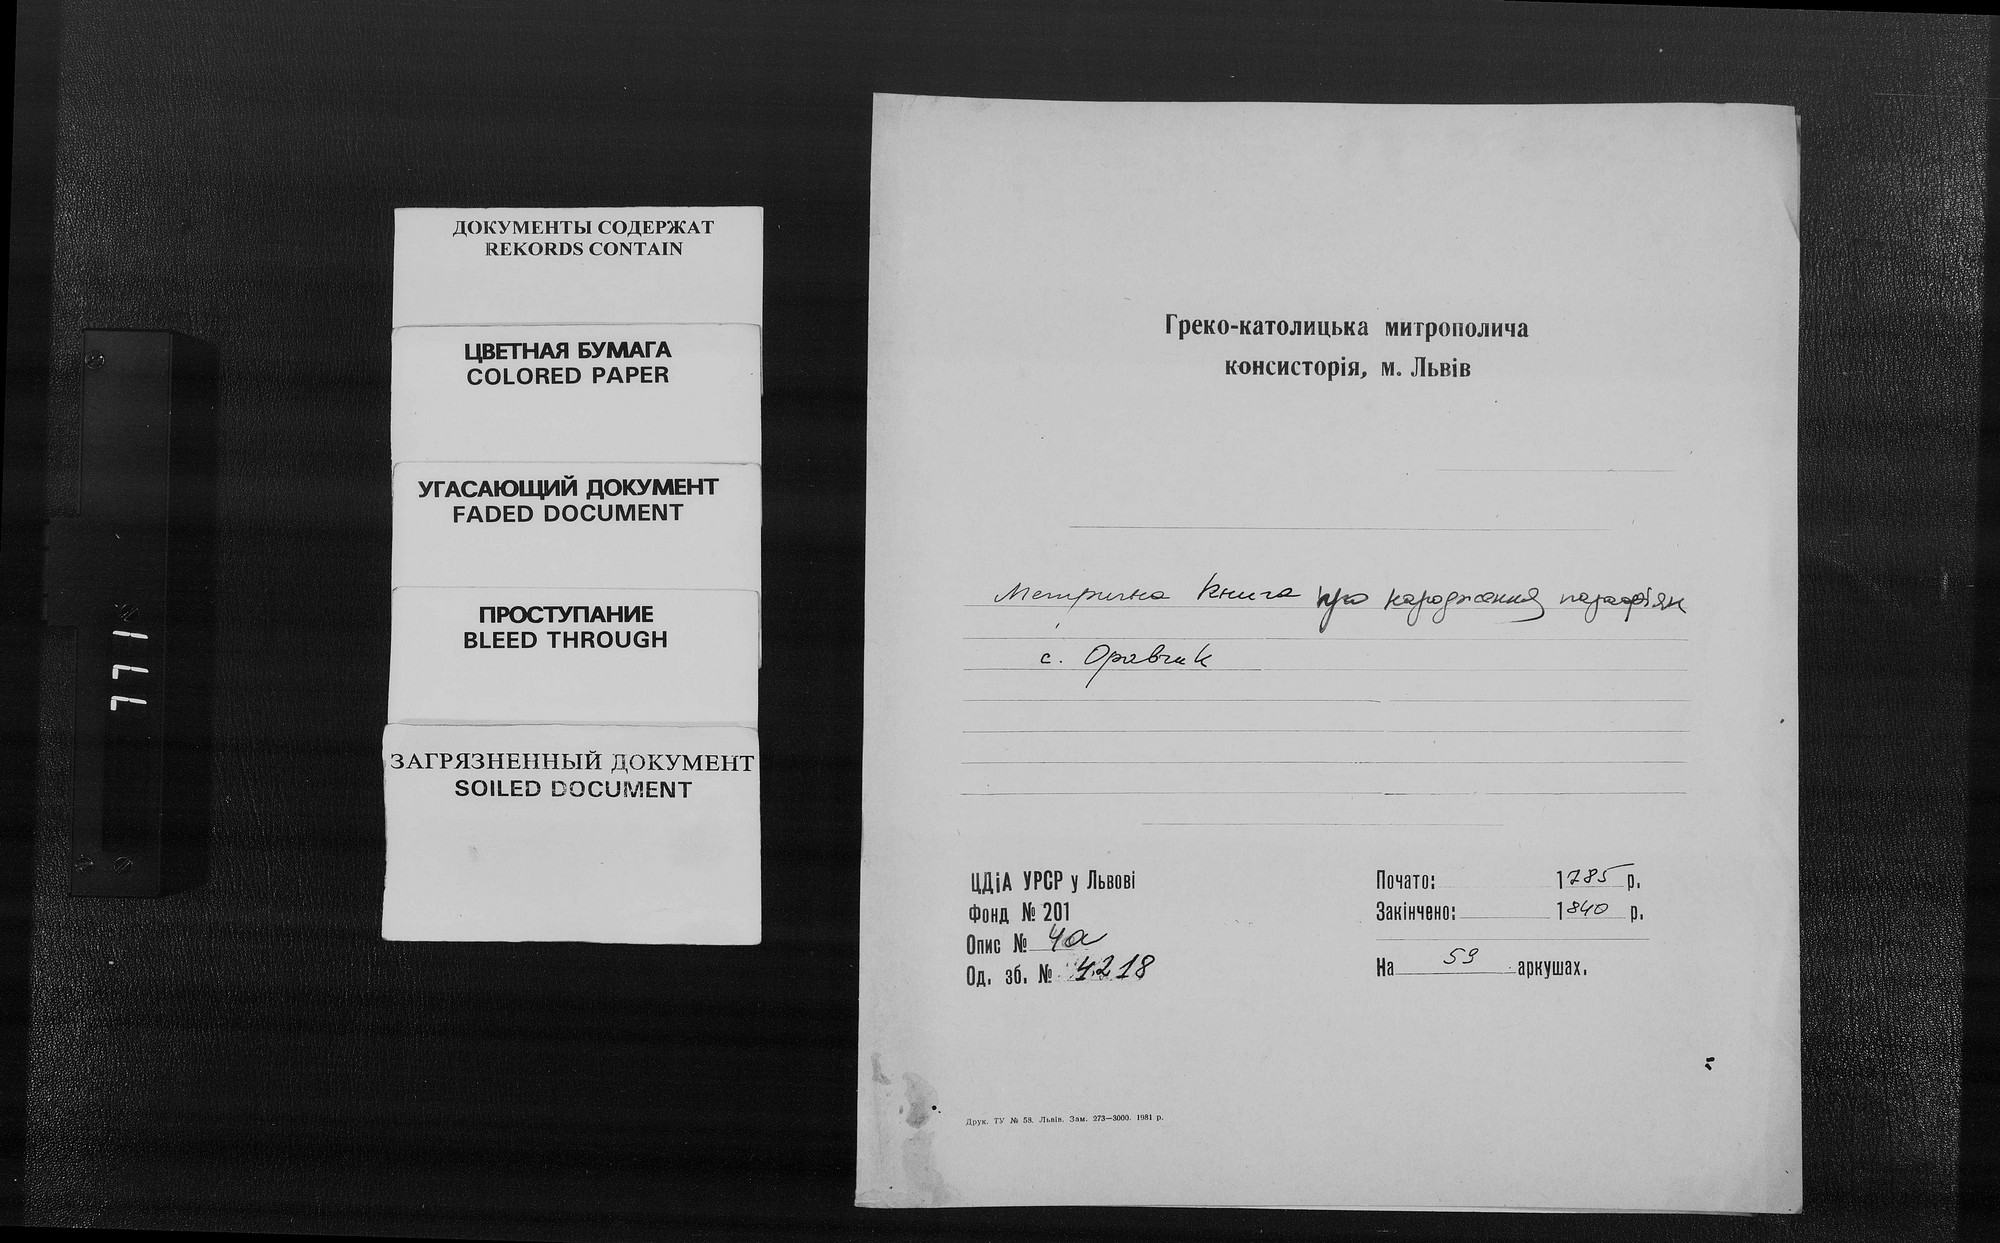 ДОКУМЕНТЫ СОДЕРЖАТ
REKORDS CONTAIN
ЦВЕТНАЯ БУМАГА
COLORED PAPER
УГАСАЮЩИЙ ДОКУМЕНТ
FADED DOCUMENT
ПРОСТУПАНИЕ
BLEED THROUGH
ЗАГРЯЗНЕННЫЙ ДОКУМЕНТ
SOILED DOCUMENT
771
Греко-католицька митрополича
консисторія, м. Львів
Метрична книга про народження парафіян
с. Оравчик
ЦДіА УРСР у Львові
Фонд № 201
Опис № 4а
Од. зб. № 4218
Почато: 1785 р.
Закінчено: 1840 р.
На 59 аркушах.
Друк. ТУ № 58. Львів. Зам. 273—3000. 1981 р.